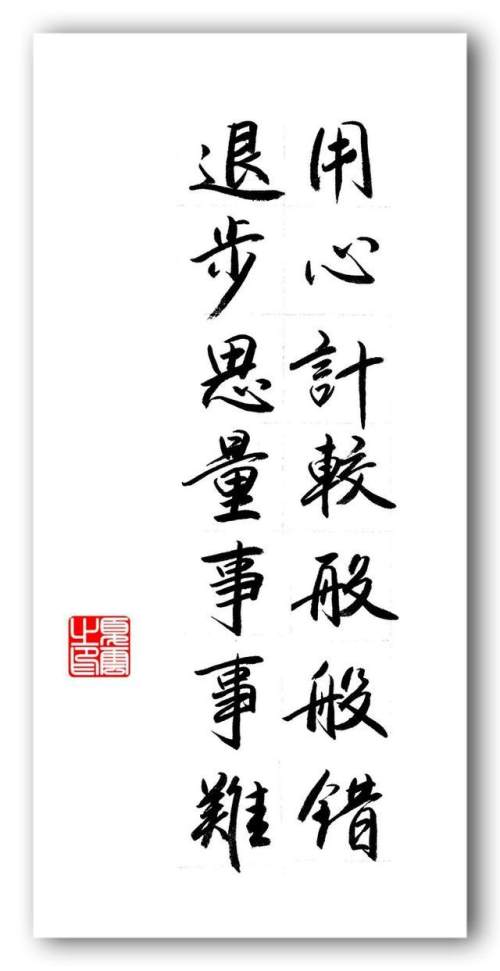 用心計較般般錯
退步思量事事難